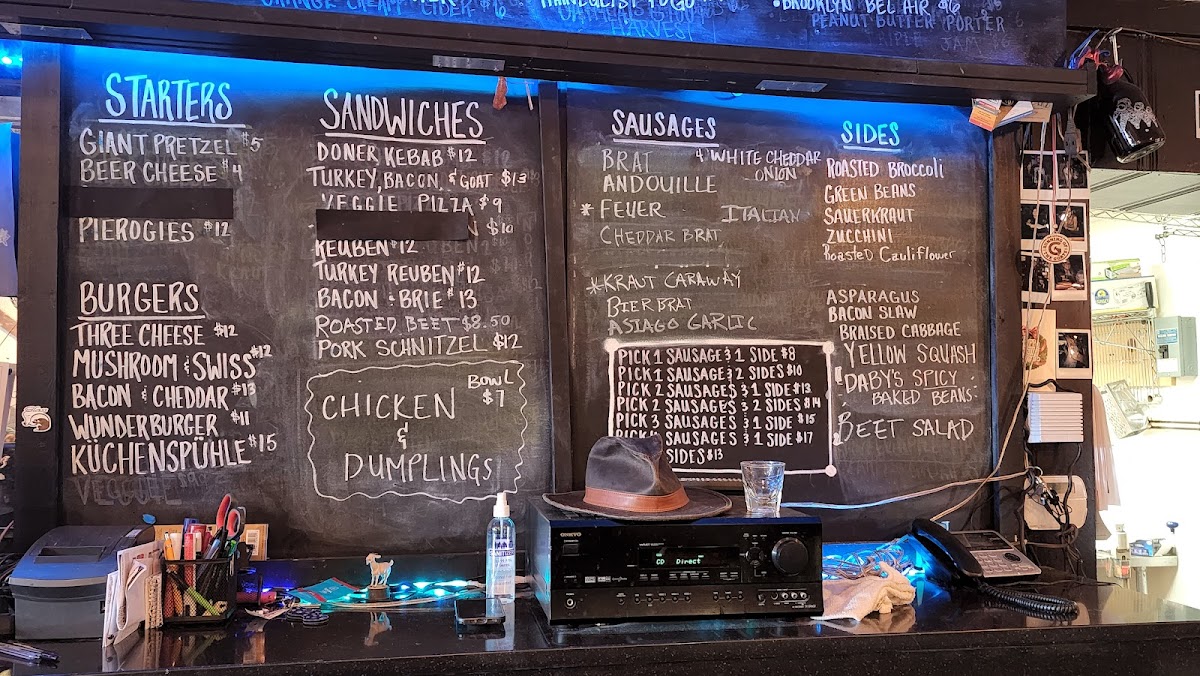 ORANGE CREAM CIDER $6
HARVEST
BROOKLYN BEL AIR $6
PEANUT BUTTER PORTER
STARTERS
GIANT PRETZEL $5
BEER CHEESE $4
PIEROGIES $12
BURGERS
THREE CHEESE $12
MUSHROOM & SWISS $12
BACON & CHEDDAR $13
WUNDERBURGER $11
KÜCHENSPÜHLE $15
VEGGIE $9
SANDWICHES
DONER KEBAB $12
TURKEY, BACON, & GOAT $13
VEGGIE PILZA $9
$10
REUBEN $12
TURKEY REUBEN $12
BACON & BRIE $13
ROASTED BEET $8.50
PORK SCHNITZEL $12
CHICKEN
&
DUMPLINGS
BOWL
$7
SAUSAGES
BRAT
ANDOUILLE
* FEUER
CHEDDAR BRAT
WHITE CHEDDAR
ONION
ITALIAN
*KRAUT CARAWAY
BIERBRAT
ASIAGO GARLIC
PICK 1 SAUSAGE & 1 SIDE $8
PICK 1 SAUSAGE & 2 SIDES $10
PICK 2 SAUSAGES & 1 SIDE $13
PICK 2 SAUSAGES & 2 SIDES $14
PICK 3 SAUSAGES & 1 SIDE $15
SAUSAGES & 1 SIDE $17
SIDES $13
SIDES
ROASTED BROCCOLI
GREEN BEANS
SAUERKRAUT
ZUCCHINI
Roasted Cauliflower
ASPARAGUS
BACON SLAW
BRAISED CABBAGE
YELLOW SQUASH
DABY'S SPICY
BAKED BEANS
BEET SALAD
ONKYO
CD Direct